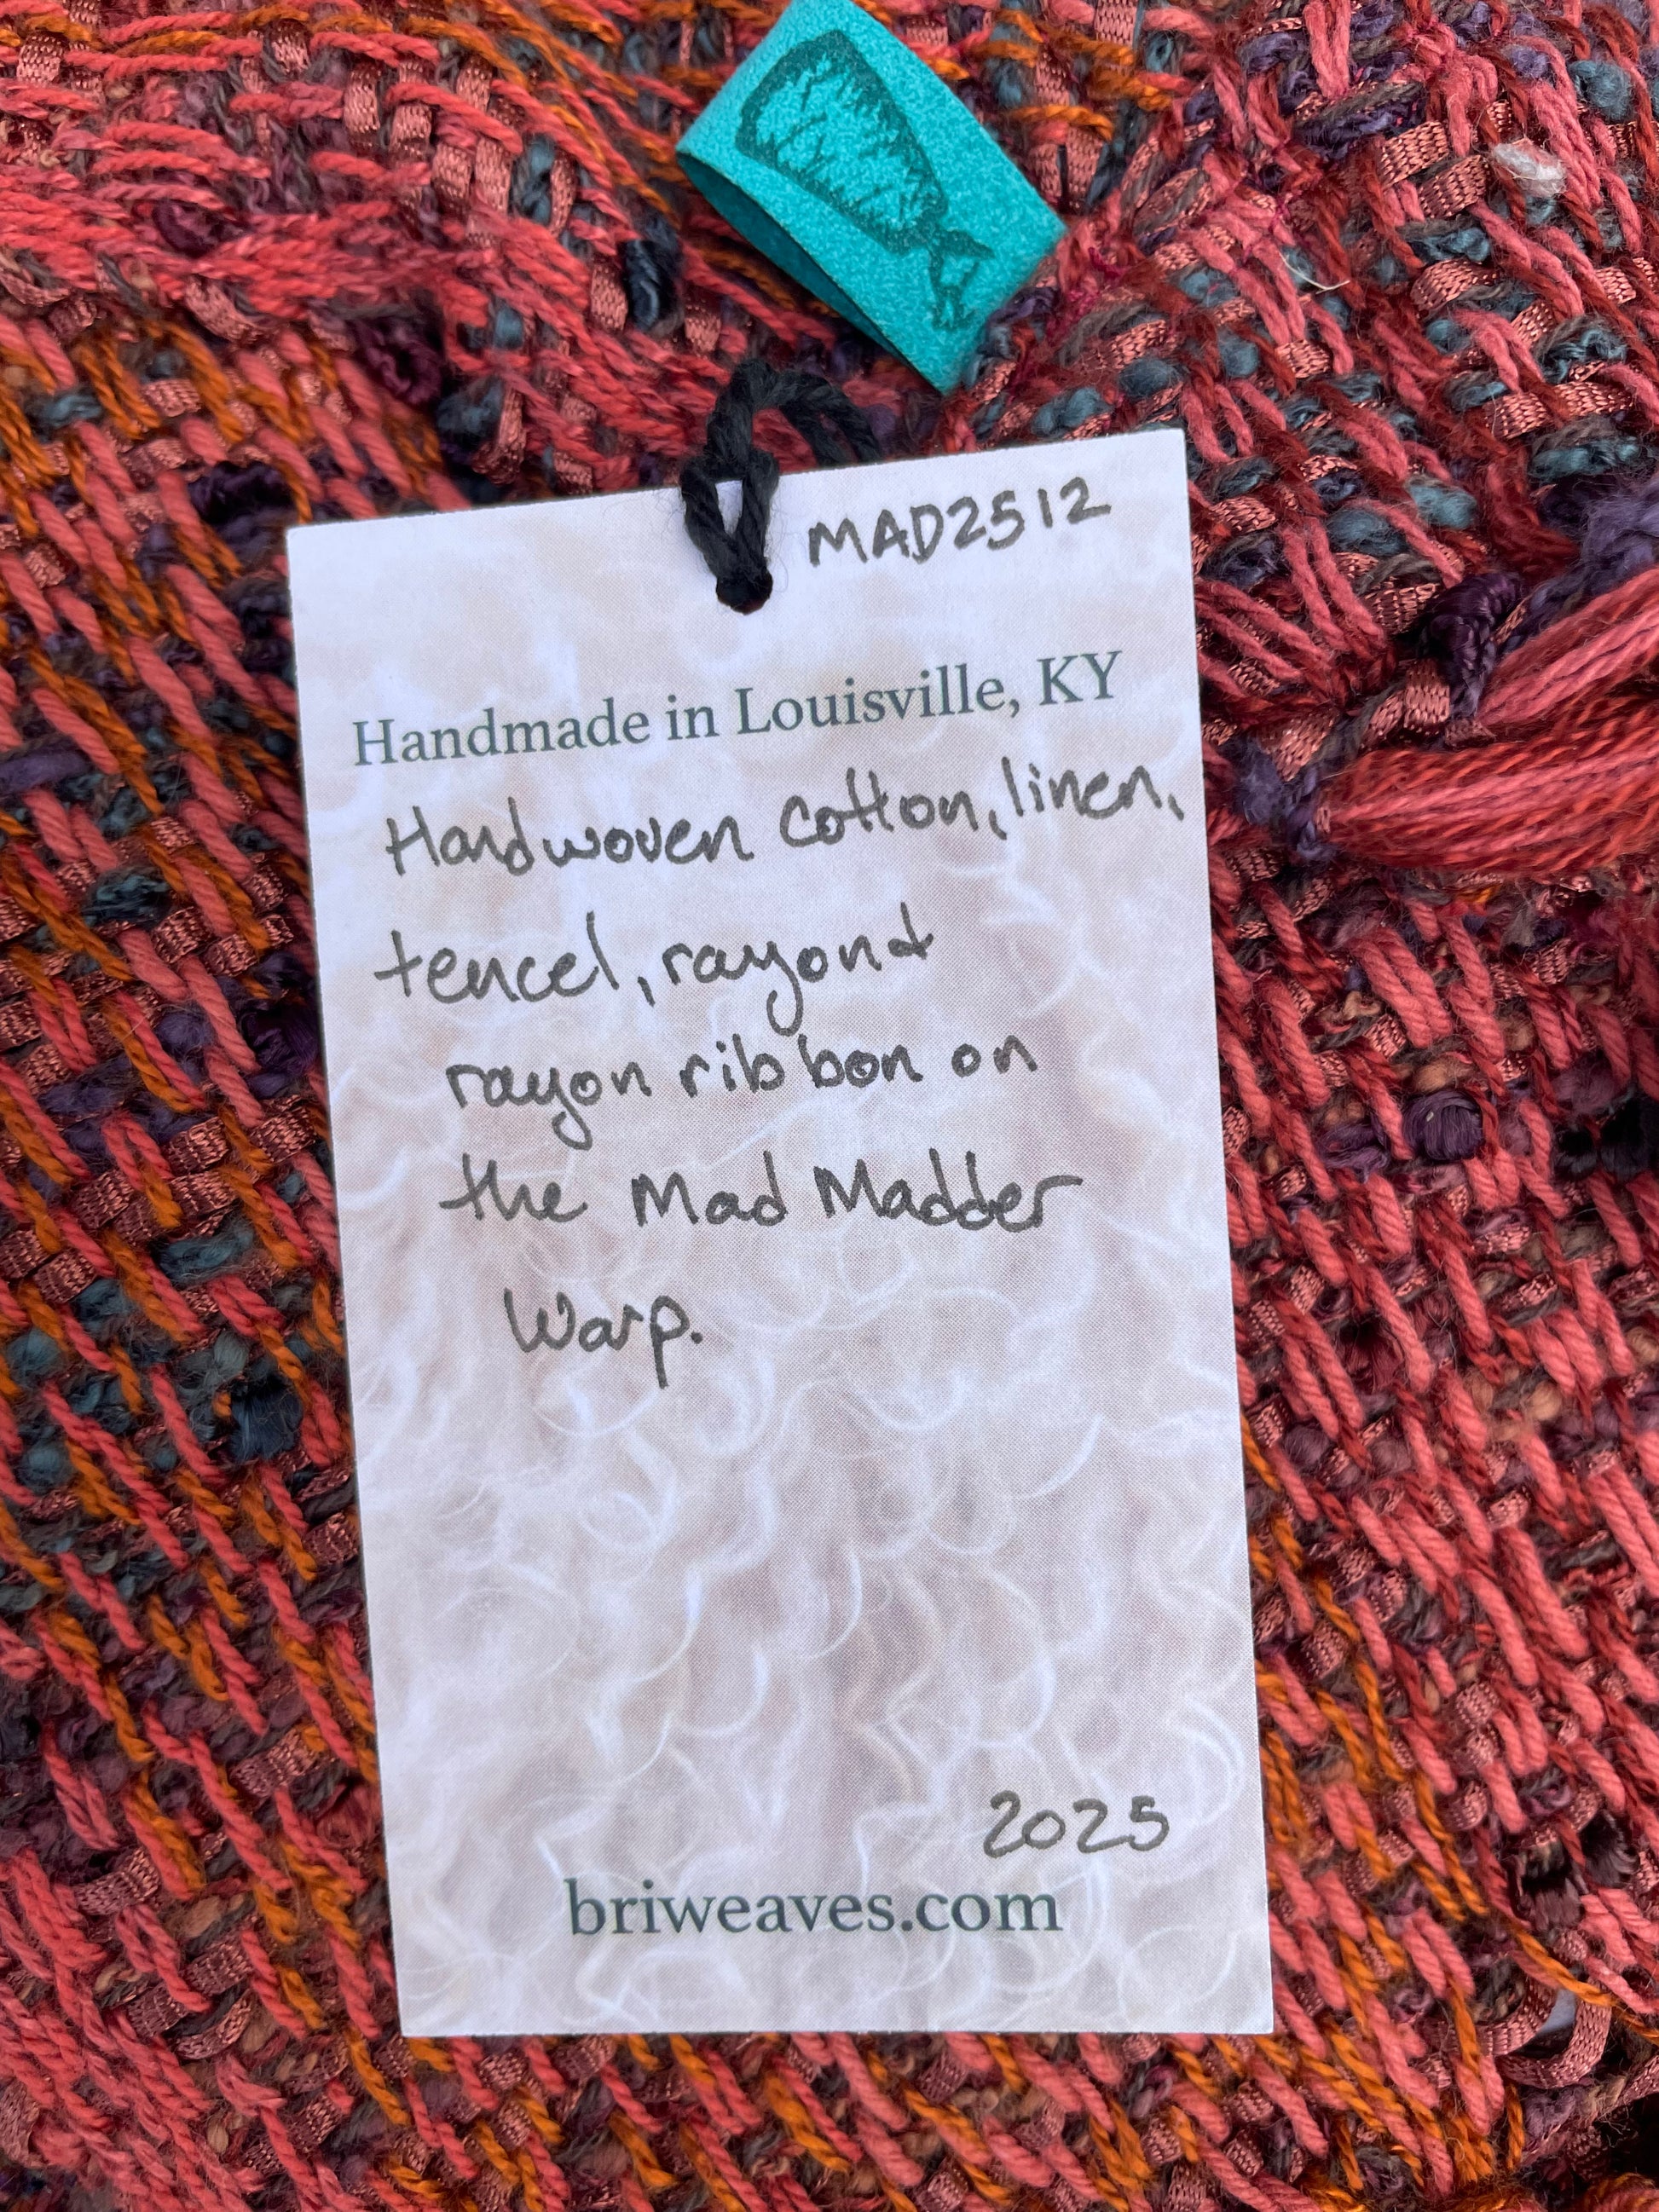 MAD2512
Handmade in Louisville, KY
Handwoven cotton, linen,
tencel, rayon &
rayon ribbon on
the Mad Madder
Warp.
2025
briweaves.com